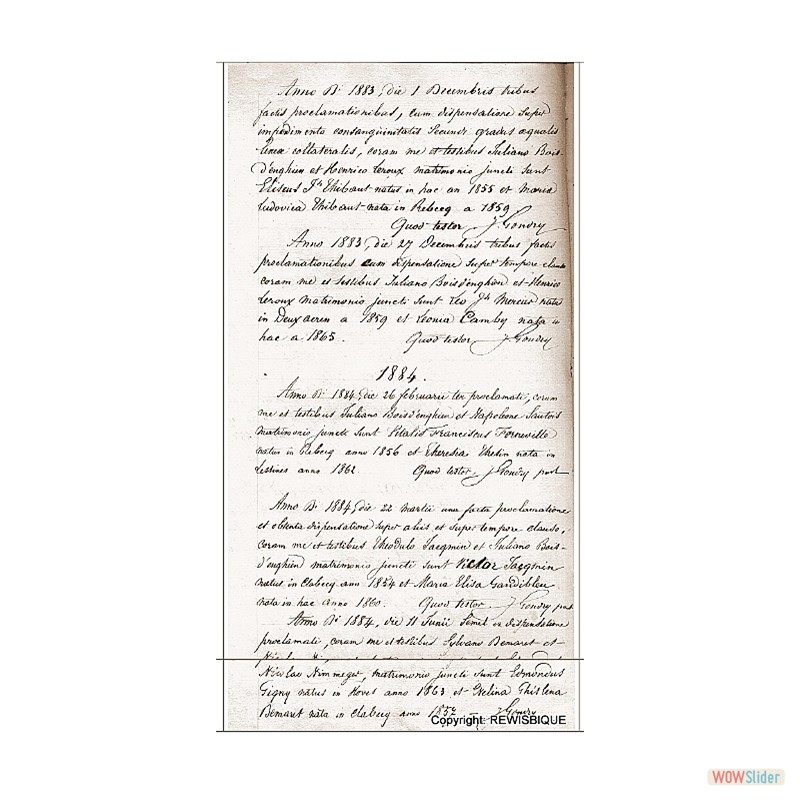 Anno Dni 1883, die 1 Decembris tribus
factis proclamationibus, cum dispensatione super
impedimento consanguinitatis secundi gradus æqualis
lineæ collateralis, coram me et testibus Juliano Bois-
d'enghien et Henrico Leroux matrimonio juncti sunt
Eliseus Jh Thibaut natus in hac an 1855 et Maria
Ludovica Thibaut nata in Rebecq a 1859
Quod testor J. Gondry
Anno 1883, die 27 Decembris tribus factis
proclamationibus cum dispensatione super tempore clauso
coram me et testibus Juliano Boisd'enghien et Henrico
Leroux matrimonio juncti sunt Leo Jh Mercus natus
in Deux acren a 1859 et Leonia Camby nata in
hac a 1865. Quod testor J. Gondry
1884.
Anno Dni 1884, die 26 februarii ter proclamati, coram
me et testibus Juliano Boisd'enghien et Napoleone Sautois
matrimonio juncti sunt Vitalis Franciscus
natus in Clabecq anno 1856 et Theresia nata in
Lessines anno 1862. Quod testor J. Gondry past
Anno Dni 1884, die 22 martii una facta proclamatione
et obtenta dispensatione super aliis et super tempore clauso,
coram me et testibus Theodulo Jacqmin et Juliano Bois-
d'enghien matrimonio juncti sunt Victor Jacqmin
natus in Clabecq ann 1854 et Maria Elisa Gandibleu
nata in hac anno 1860. Quod testor J. Gondry past
Anno Dni 1884, die 11 Junii semel ex dispensatione
proclamati, coram me et testibus Sylvano Demaret et
Nicolao Nimmegeer, matrimonio juncti sunt Edmondus
Gigny natus in Hoves anno 1863 et Ghislena
Demaret nata in Clabecq anno J. Gondry
Copyright: REWISBIQUE
WOWSlider